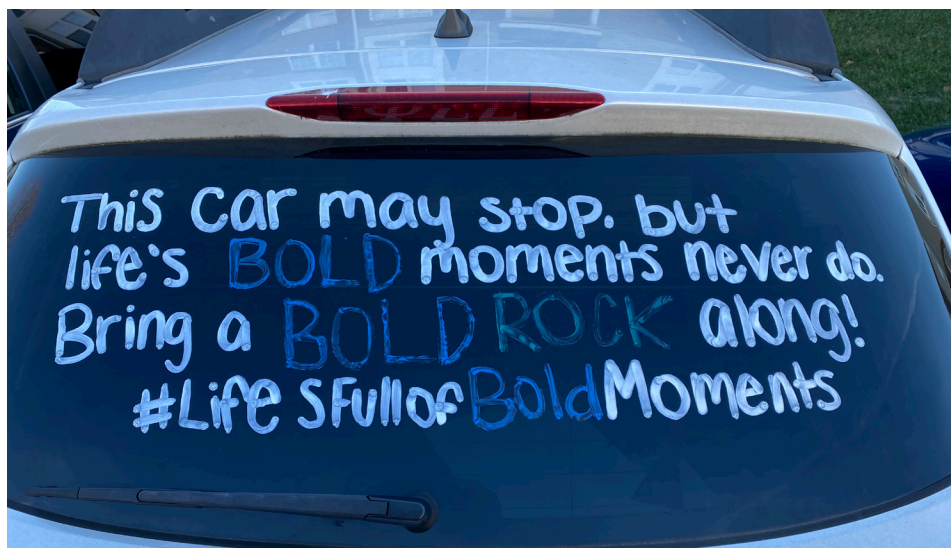 This car may stop. but
life's BOLD moments never do.
Bring a BOLD ROCK along!
#LifeSFullofBoldMoments